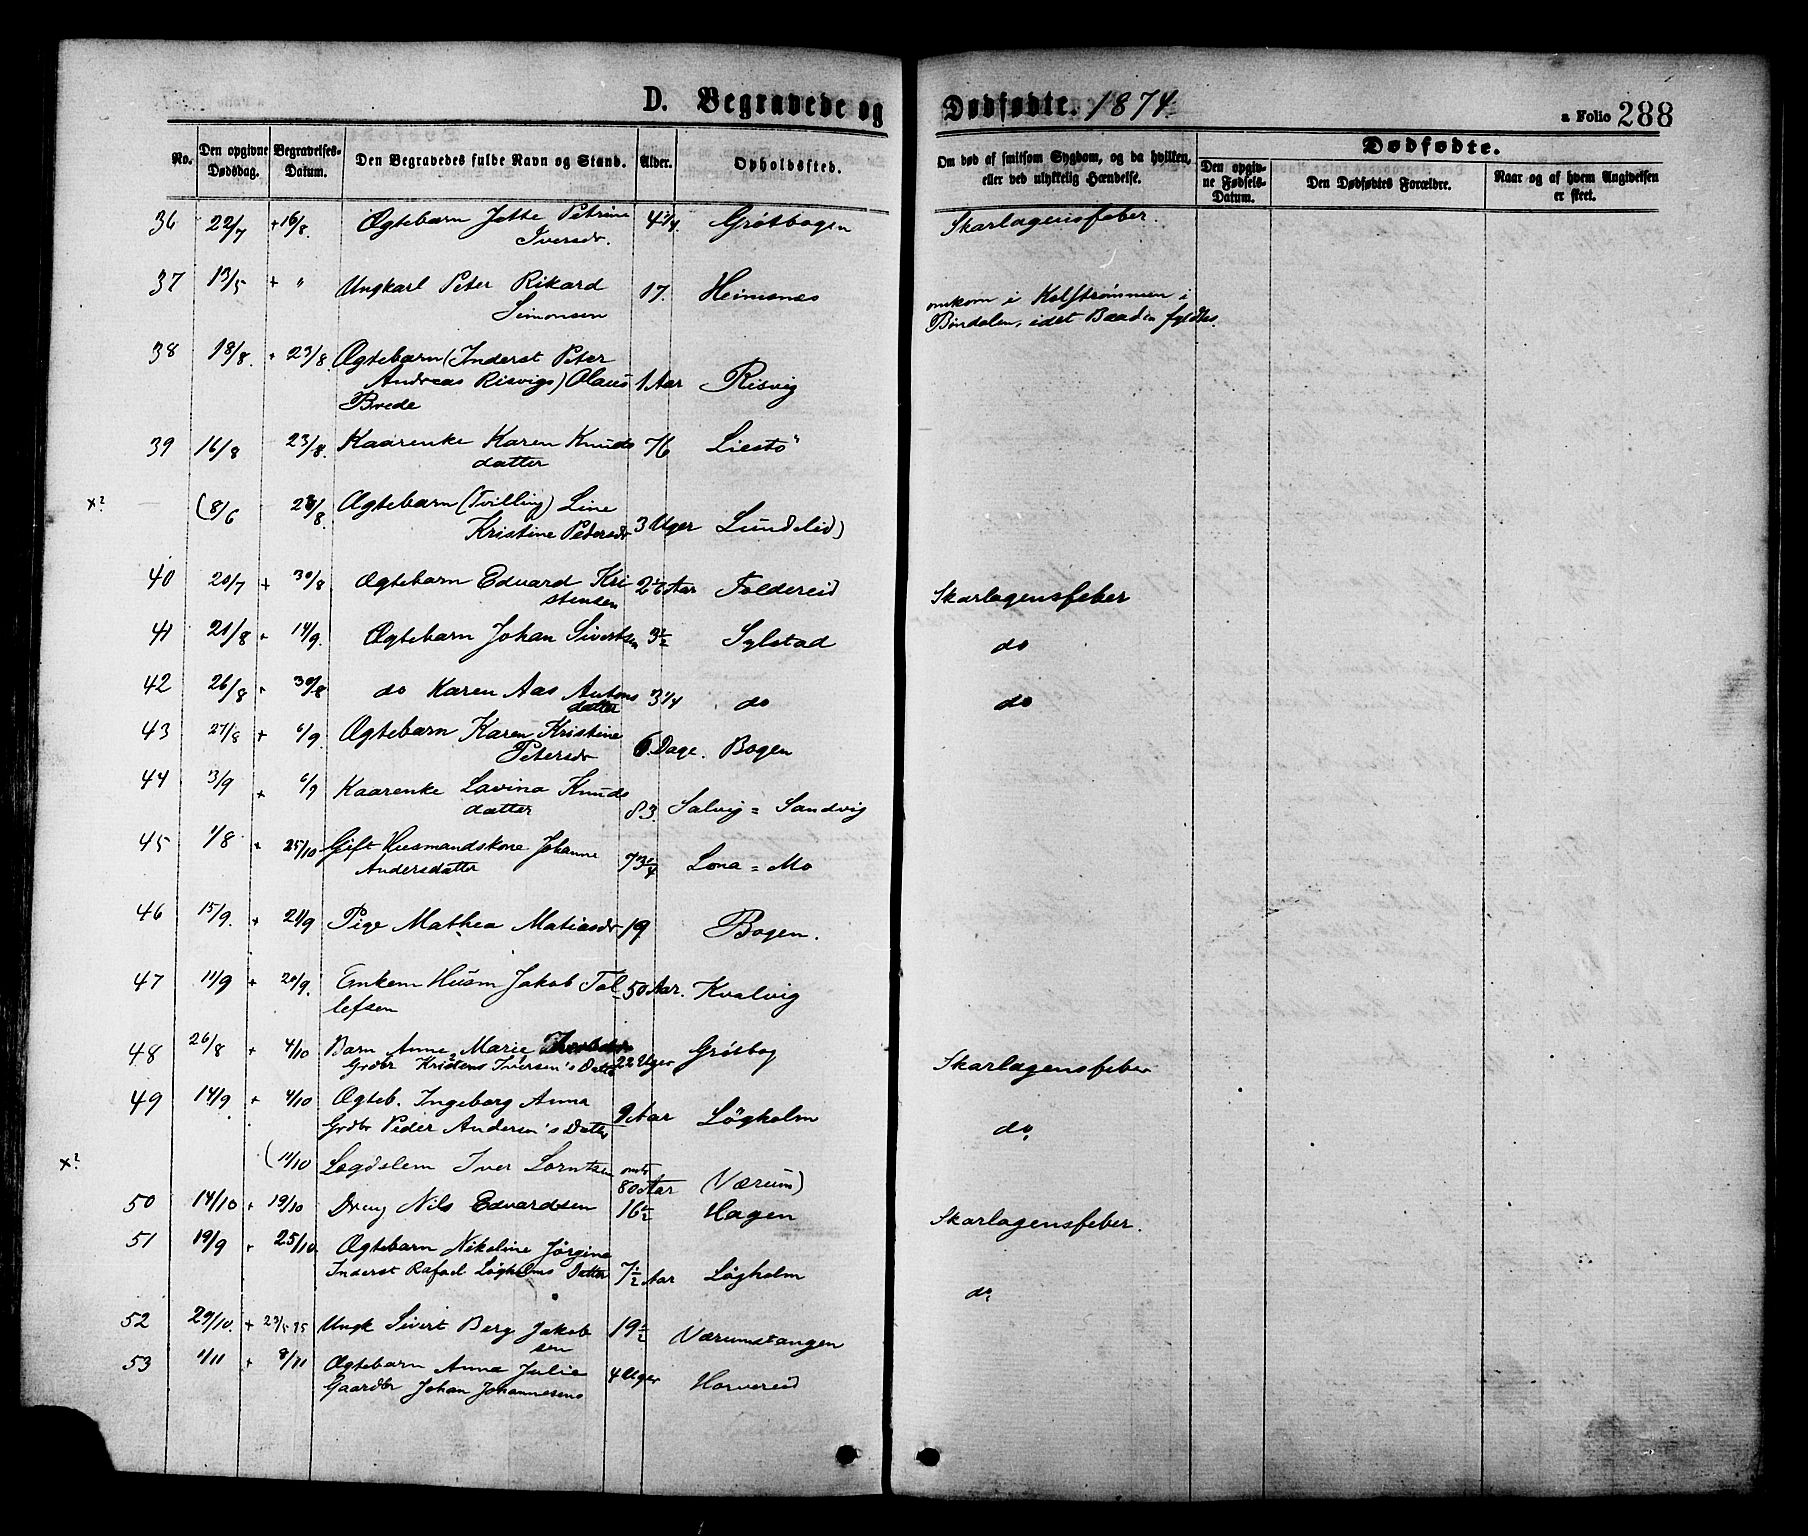 D. Begravede og Dødfødte. 1874.
a Folio 288
No. Den opgivne Dødsdag. Begravelses-Datum. Den Begravedes fulde Navn og Stand. Alder. Opholdssted. Om død af smitsom Sygdom, og da hvilken, eller ved ulykkelig Hændelse. Dødfødte. Den opgivne Fødsels-Datum. Den Dødfødtes Forældre. Naar og af hvem Angivelsen er skeet.
36 22/7 + 16/8. Ægtebarn Jette Petrine 4 3/4. Grøtbogen Skarlagensfeber.
Iversdr.
37 13/5 + " Ungkarl Peter Rikard 17. Heimsnes omkom i Kolstrømmen i
Simonsen Bindalen, idet Baaden fyldtes.
38 18/8. + 23/8. Ægtebarn (Inderst Peter
Andreas Risvigs) Olaus 1 Aar Risvig
Brede
39 16/8 23/8. Kaarenke Karen Knuds 76 Liestø
datter
x? (8/6 23/8 Ægtebarn (Tvilling) Line
Kristine Pedersdr 3 Uger Lundelid)
40 20/7 + 30/8 Ægtebarn Edvard Kri 2 1/2 Aar Foldereid Skarlagensfeber
stensen
41 21/8 + 14/9. Ægtebarn Johan Sivertsen 3 1/2 Sylstad do
42 26/8 + 30/8 do Karen Aas Antons 3 1/4 do do
datter
43 27/8 + 6/9. Ægtebarn Karen Kristine
Petersdr 6. Dage. Bogen
44 3/9 + 6/9 Kaarenke Lavina Knuds
datter 83. Salvig = Sandvig
45 1/8 + 25/10 Gift Husmandskone Johanne
Andersdatter 73 3/4 Lona = Mo
46 15/9. + 21/9 Pige Mathea Matiasdr 19 Bogen.
47 11/9 + 20/9. Enkem Husm Jakob Tol 50 Aar. Kvalvig
lefsen
48 26/8 + 4/10 Barn Anne Marie
Grdbr Kristens Iversen's Datter 22 Uger Grøtbog Skarlagensfeber
49 14/9 + 4/10 Ægteb. Ingeborg Anna
Grdbr Peder Andersen's Datter 9 Aar Løgholm do.
x? (11/10 Lægdslem Iver Lorntsen omtr
80 Aar (Værum)
50 14/10 + 19/10 Dreng Nils Edvardsen 16 1/2 Hagen Skarlagensfeber.
51 19/9 + 25/10. Ægtebarn Nikoline Jørgine
Inderst Rafael Løgholms Datter 7 1/2 Aar Løgholm do.
52 29/10. + 23/5 75 Ungk Sivert Berg Jakob 19 1/2 Værumstangen
sen
53 1/11 + 8/11 Ægtebarn Anna Julie
Gaardbr Johan Johannesens 4 Uger Horvereid